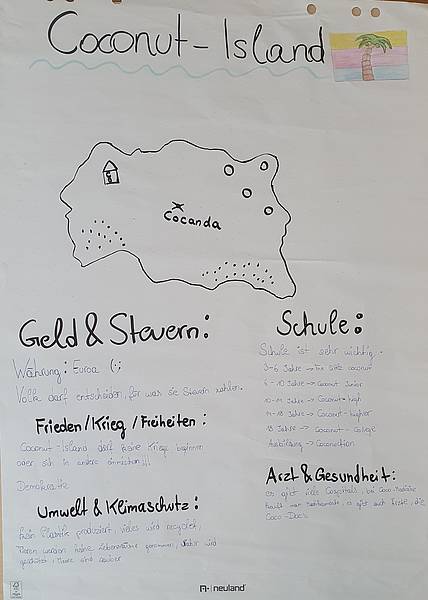 Coconut-Island
Cocanda
Geld & Steuern:
Währung: Euroa (;
Volk darf entscheiden, für was sie Steuern zahlen.
Frieden/Krieg/Freiheiten:
Coconut-Island darf keine Kriege beginnen
oder sich in andere einmischen!!!
Demokratie
Umwelt & Klimaschutz:
kein Plastik produziert, vieles wird recycelt,
werden keine Lebensräume genommen,
geschützt, Meere sind sauber
Schule:
Schule ist sehr wichtig.
3-6 Jahre → coconut
6-10 Jahre → Coconut Junior
10-14 Jahre → Coconut-high
14-18 Jahre → Coconut-higher
18 Jahre → Coconut-College
Ausbildung → Coconution
Arzt & Gesundheit:
es gibt viele Cospitals, bei
es gibt Ärzte, die
Coco-Docs
neuland